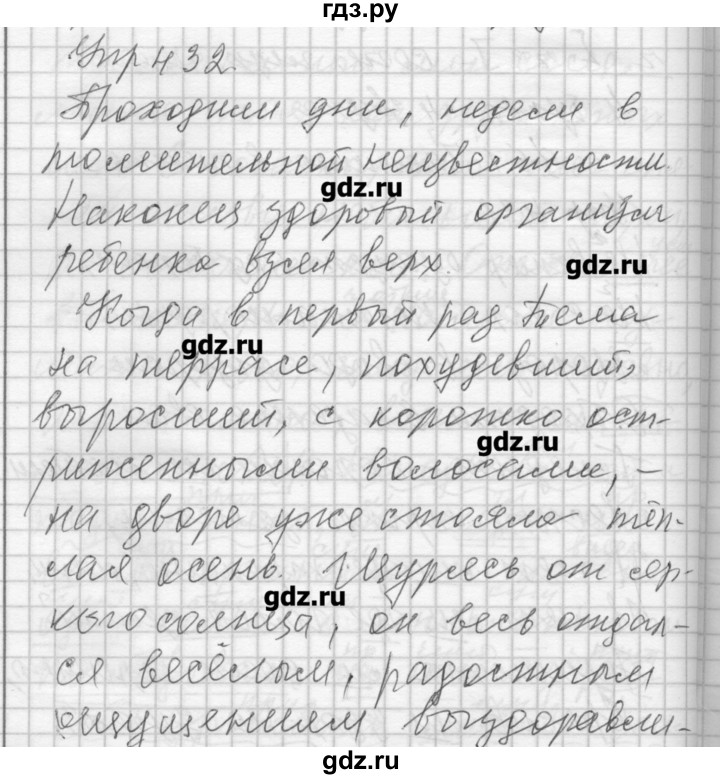 гдз.ру
Упр 432.
Проходили дни, недели в
томительной неизвестности.
gdz.ru
Наконец здоровый организм
ребенка взял верх.
gdz.ru
Когда в первый раз Тема
gdz.ru
на террасе, похудевший,
выросший, с коротко ост-
gdz.ru
риженными волосами, –
на дворе уже стояла тёп-
лая осень. Щурясь от яр-
gdz.ru
кого солнца, он весь отдал-
ся весёлым, радостным
ощущениям выздоравли-
gdz.ru